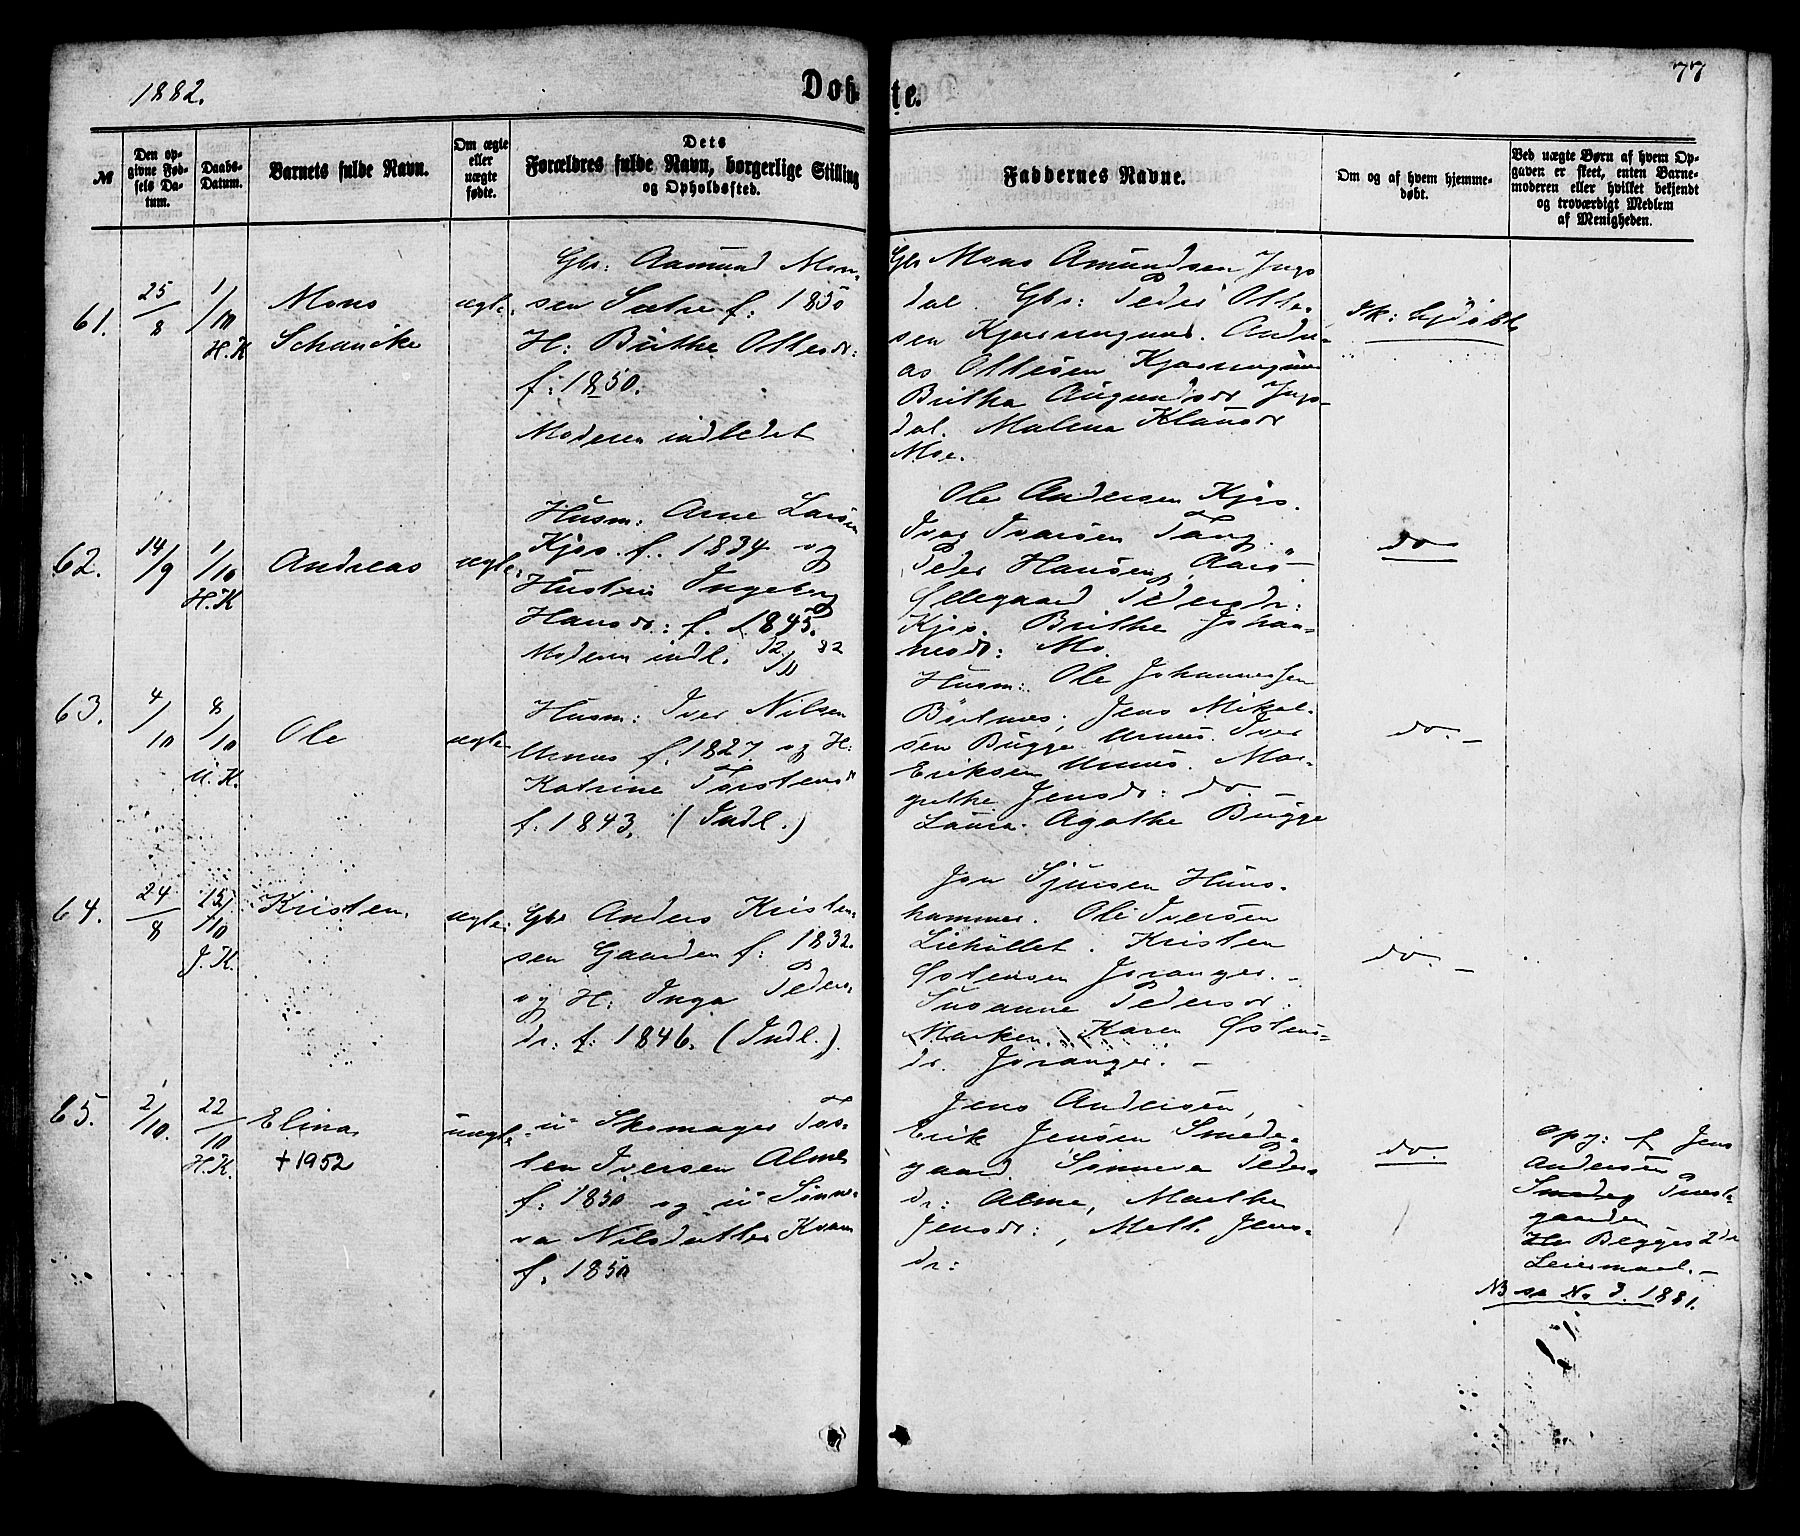 1882.
Døbte.
77
№
Den op-
givne Fød-
sels Da-
tum.
Daabs-
Datum.
Barnets fulde Navn.
Om ægte
eller
uægte
fødte.
Dets
Forældres fulde Navn, borgerlige Stilling
og Opholdssted.
Faddernes Navne.
Om og af hvem hjemme-
døbt.
Ved uægte Børn af hvem Op-
gaven er skeet, enten Barne-
moderen eller hvilket bekjendt
og troværdigt Medlem
af Menigheden.
61.
25/8
1/10
H.K
Mons
Schancke
ægte.
Gbr: Aamund Mon-
sen Sætre f: 1850
H: Brithe Ottesdr:
f: 1850.
Moderen indledet
Gbr Mons Amundsen Ings
dal. Gbr: Peder Otte-
sen Andre-
as Ottesen
Britha Amundsdr Ings-
dal. Malena Klausdr
Moe.
62.
14/9
1/10
H.K
Andreas
ægte.
Husm: Arne Larsen
Kjos. f. 1834 og
Hustru Ingeborg
Hansdr: f. 1845.
Moderen indl. 12/11 82
Ole Andersen Kjos.
Ivar Ivarsen Tang.
Peder Hansen, Aarø-
Øllegaard Pedersdr:
Kjos. Brithe Johan-
nesdr: Mo.
do
63.
4/10
8/10
U.K.
Ole
ægte
Husm: Iver Nilsen
Urnes f. 1827 og H:
Katrine Torstensdr
f. 1843. (Indl.)
Husm: Ole Johannessen
Jens Mikal-
sen Bugge Urnes. Iver
Eriksen Urnes. Mar-
grethe Jensdr: do. -
Laura Agathe Bugge
do. -
64.
24/8
15/10
J.K.
Kristen
ægte.
Gbr Anders Kristen-
sen Gaarden f: 1832.
og H: Inga Peders-
dr. f: 1846. (Indl.).
Jon Sjursen Huns-
hammer. Ole Iversen
Kristen
Østensen Joranger. -
Susanne Pedersdr.
Marken. Karen Østens-
dr. Joranger. -
do. -
65.
2/10.
22/10
H.K.
Elina
+ 1952
uægte
u Skomager Tos-
ten Iversen Alme
f: 1850 og u Sønne-
va Nilsdatter Kvam
f. 1850
Jens Andersen,
Erik Jensen Smede-
gaard. Sønneva Peders-
dr: Alme, Marthe
Jensdr:, Mett. Jens-
dr:
do.
opg: f Jens
Andersen
Smedeg Præste
gaarden
Begges 2det
Leiermaal. -
NB se No 3. 1881.